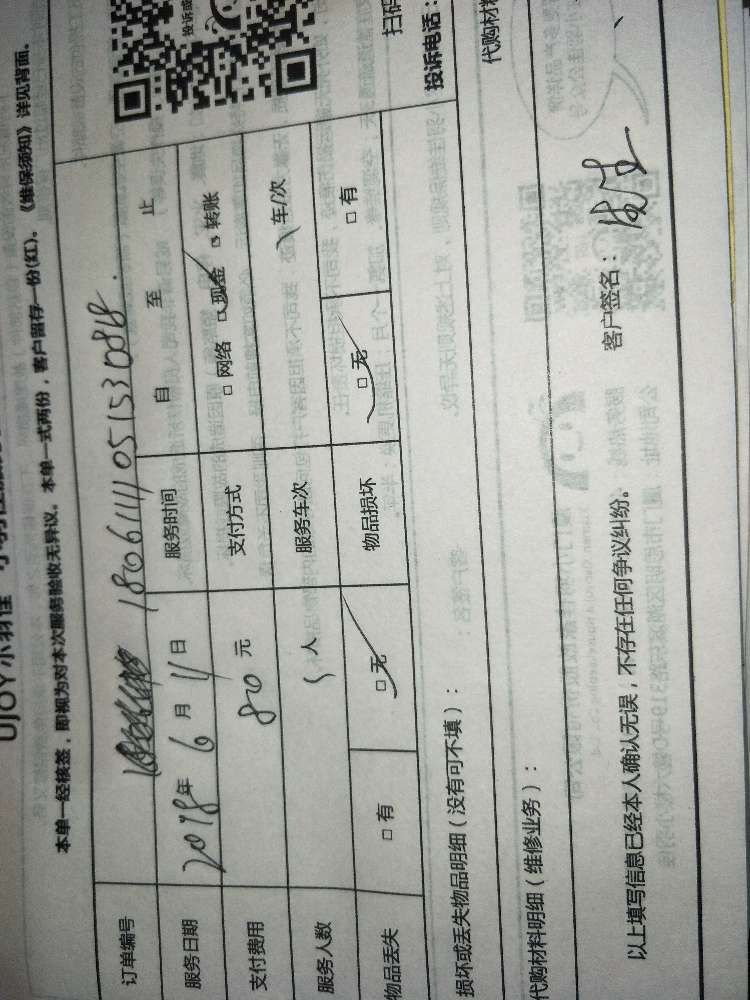 UJOY小羽佳
本单一经核签，即视为对本次服务验收无异议。本单一式两份，客户留存一份(红)。《维保须知》详见背面。
订单编号 180611110515330818
服务日期 2018年 6 月 11 日 服务时间 自 至 止
支付费用 80 元 支付方式 □ 网络 □ 现金 □ 转账
服务人数 人 服务车次 车/次
物品丢失 □ 有 □ 无 物品损坏 □ 无 □ 有
损坏或丢失物品明细（没有可不填）： 投诉电话：
代购材料明细（维修业务）： 代购材料
以上填写信息已经本人确认无误，不存在任何争议纠纷。 客户签名：
扫码
投诉或